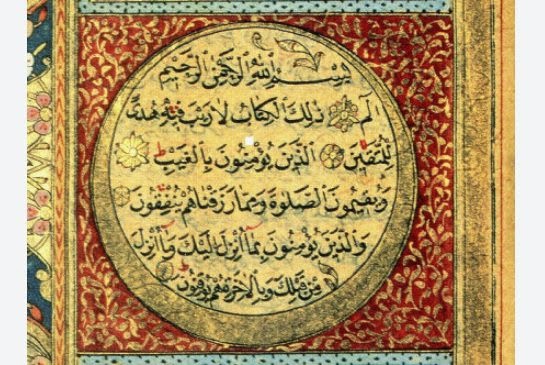 بِسْمِ اللهِ الرَّحْمٰنِ الرَّحِيمِ
الم ذٰلِكَ الْكِتَابُ لَا رَيْبَ فِيهِ هُدًى
لِلْمُتَّقِينَ الَّذِينَ يُؤْمِنُونَ بِالْغَيْبِ
وَيُقِيمُونَ الصَّلٰوةَ وَمِمَّا رَزَقْنَاهُمْ يُنْفِقُونَ
وَالَّذِينَ يُؤْمِنُونَ بِمَا أُنْزِلَ إِلَيْكَ وَمَا أُنْزِلَ
مِنْ قَبْلِكَ وَبِالْاٰخِرَةِ هُمْ يُوقِنُونَ